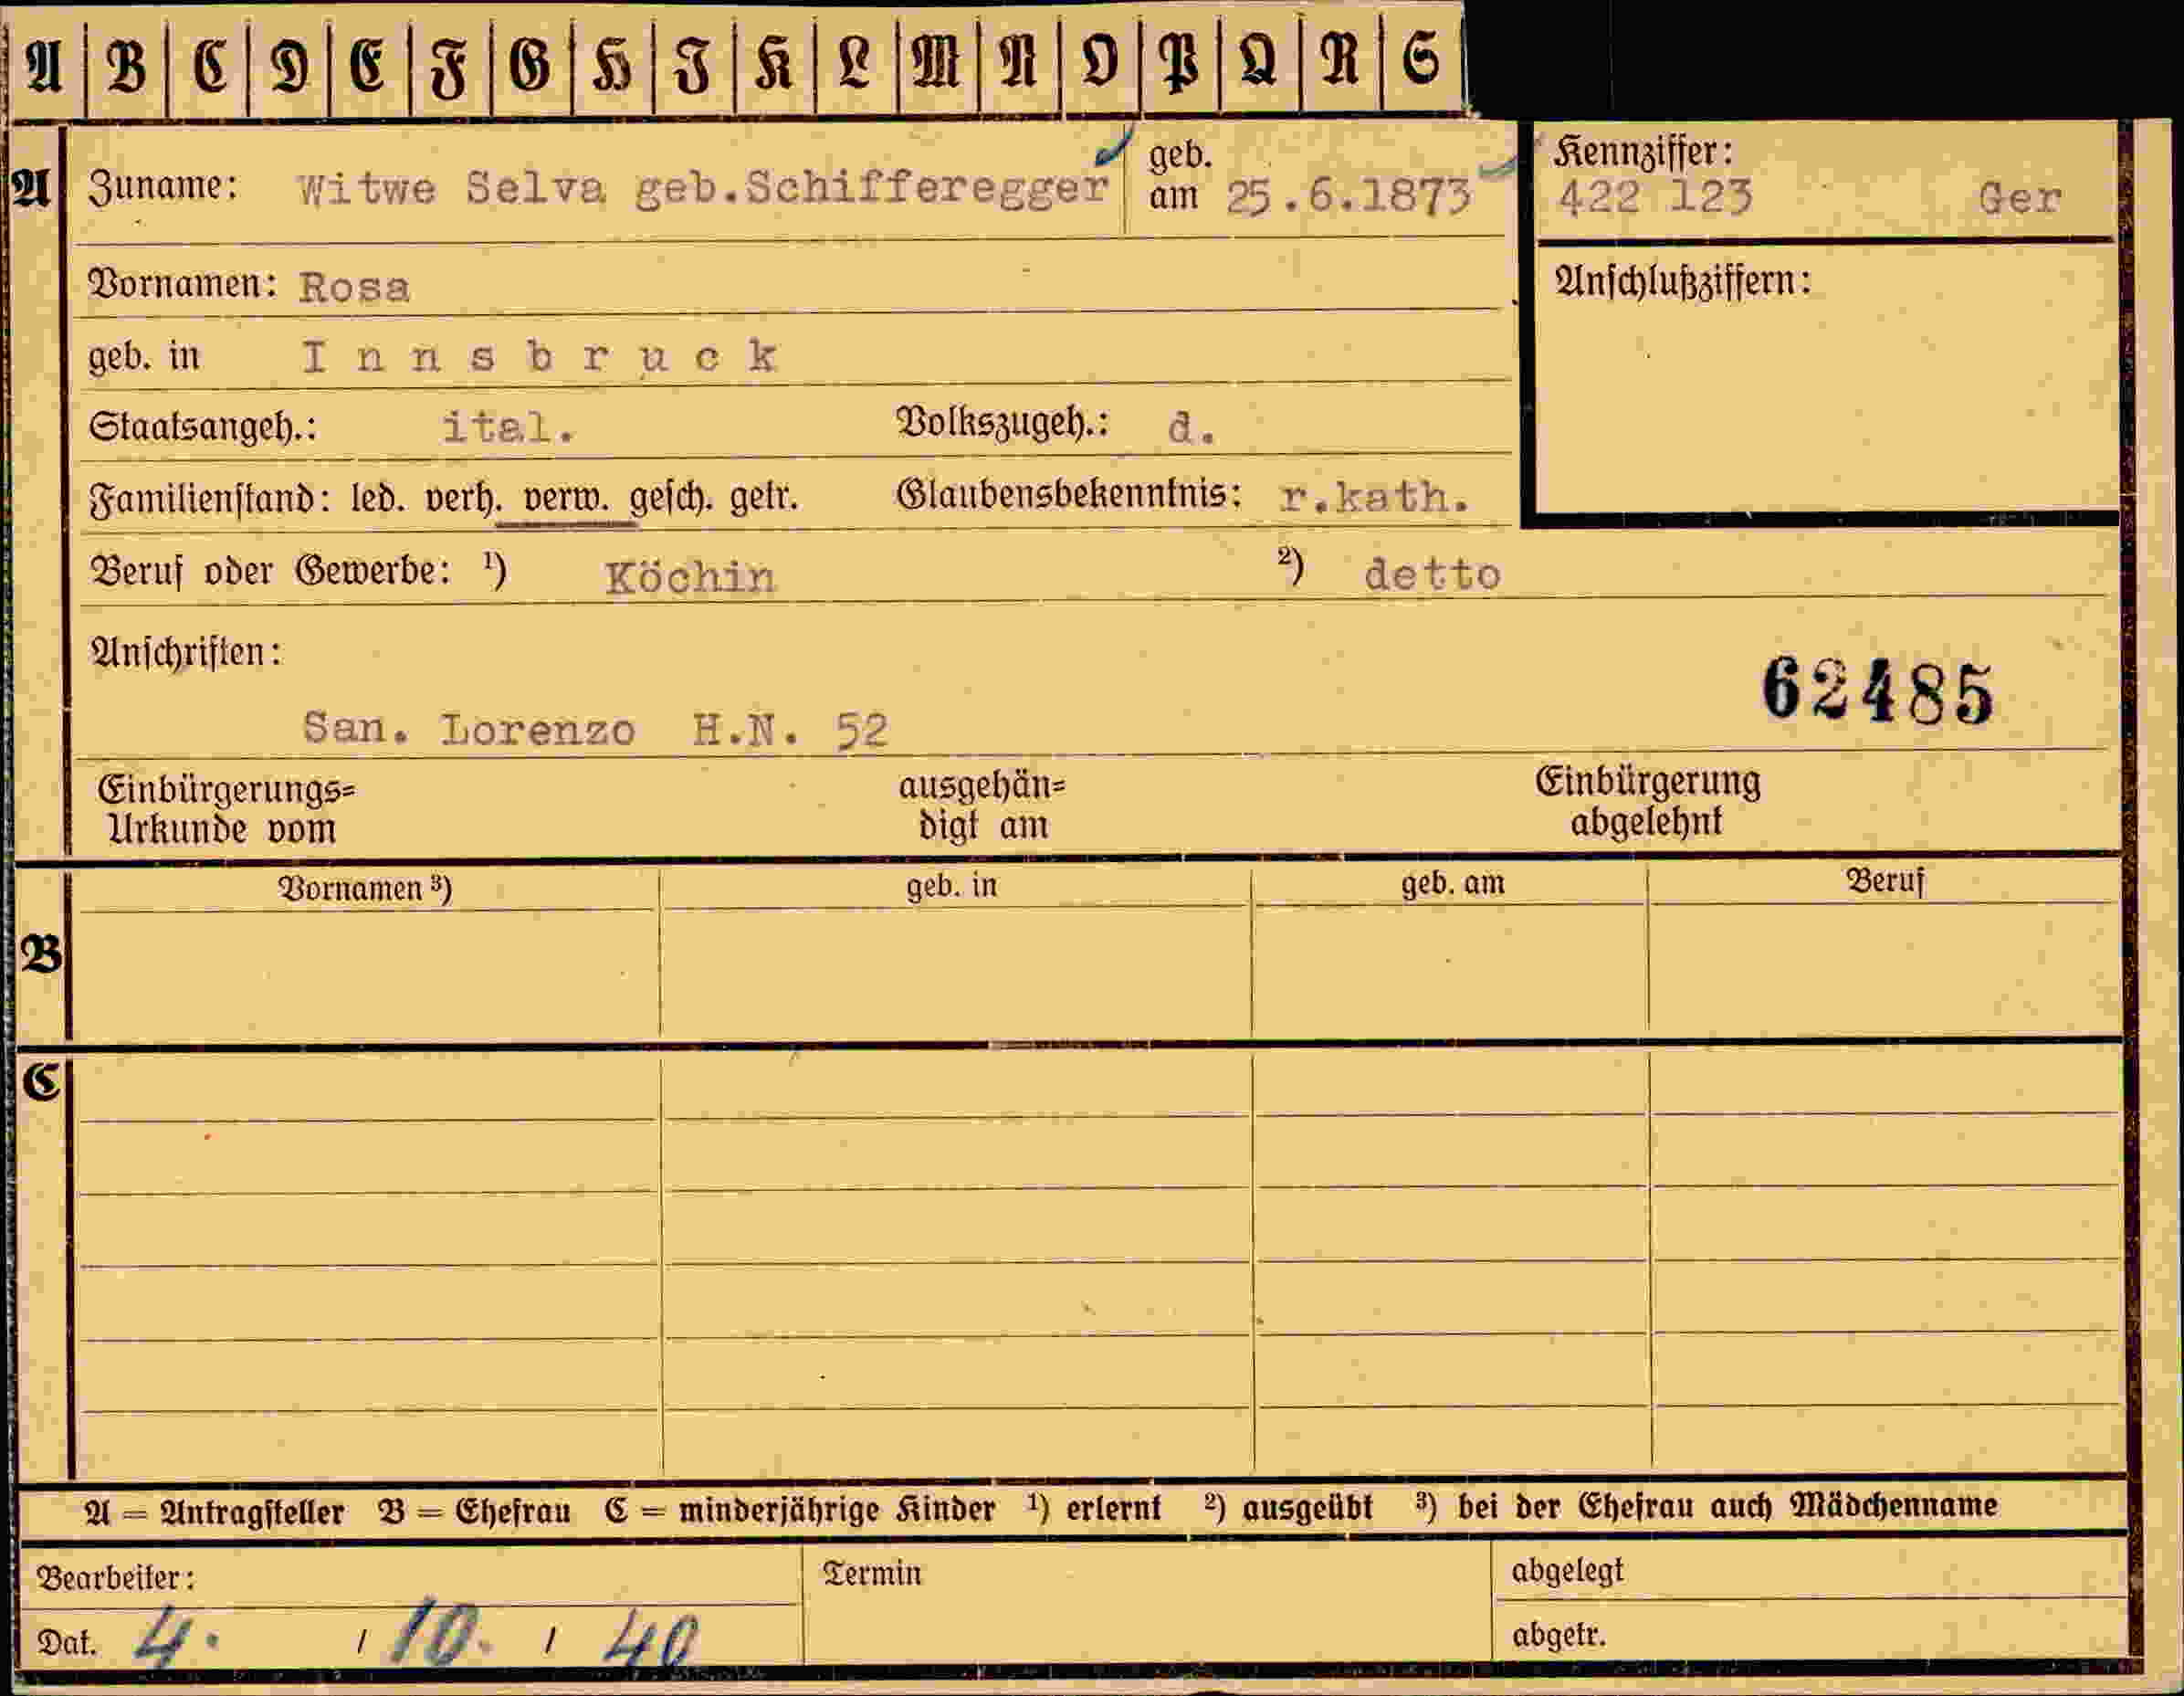 A B C D E F G H I K L M N O P Q R S
A Zuname: Witwe Selva geb.Schifferegger geb. am 25.6.1873 Kennziffer: 422 123 Ger
Vornamen: Rosa Anschlußziffern:
geb. in Innsbruck
Staatsangeh.: ital. Volkszugeh.: d.
Familienstand: led. verh. verw. gesch. getr. Glaubensbekenntnis: r.kath.
Beruf oder Gewerbe: ¹) Köchin ²) detto
Anschriften:
62485
San. Lorenzo H.N. 52
Einbürgerungs= ausgehän= Einbürgerung
Urkunde vom digt am abgelehnt
Vornamen ³) geb. in geb. am Beruf
B
C
A = Antragsteller B = Ehefrau C = minderjährige Kinder ¹) erlernt ²) ausgeübt ³) bei der Ehefrau auch Mädchenname
Bearbeiter: Termin abgelegt
Dat. 4. / 10. / 40 abgetr.